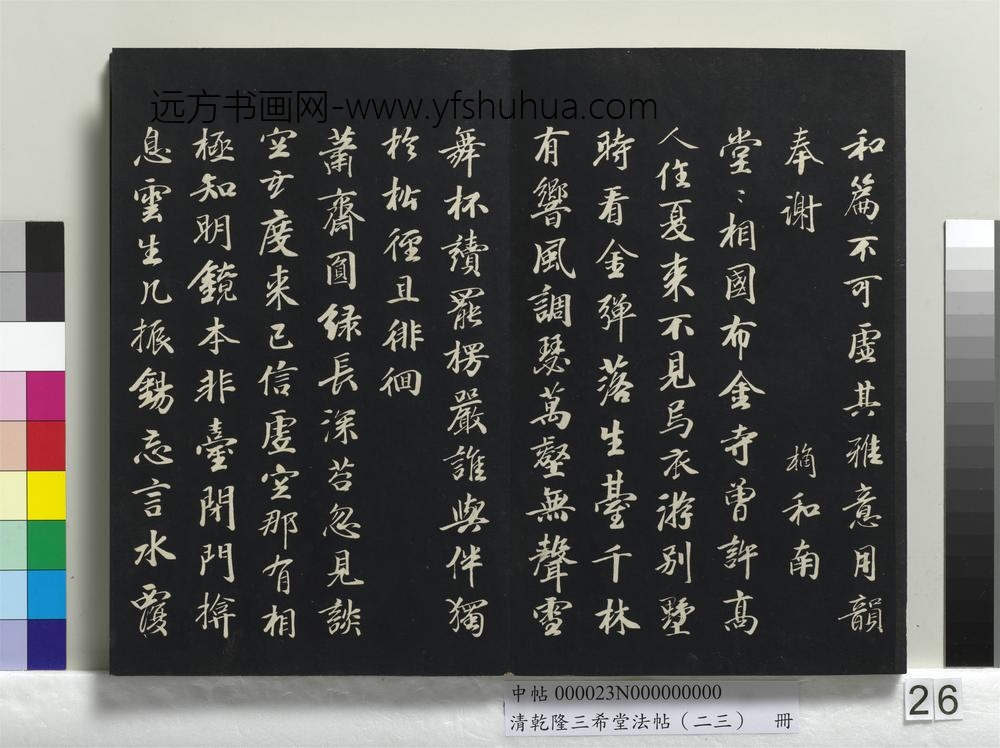 远方书画网-www.yfshuhua.com
和篇不可虛其雅意用韻
奉謝 桷和南
堂〻相國布金寺曾許高
人住夏来不見烏衣游別墅
時看金彈落生臺千林
有響風調瑟萬壑無聲雪
舞杯讀罷楞嚴誰與伴獨
於松徑且徘徊
蕭齋圓緑長深苔忽見談
空度來已信虛空那有相
極知明鏡本非臺閉門揜
息雲生几振錫忘言水覆
中帖 000023N000000000
清乾隆三希堂法帖（二三） 冊
26